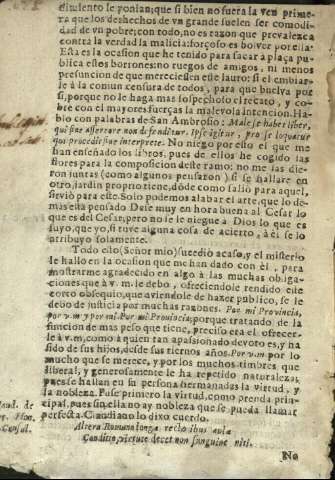 titulento le ponian; que si bien no fuera la vez prime-
ra que los deshechos de vn grande suelen ser comodi-
dad de vn pobre; con todo, no es razon que prevalezca
contra la verdad la malicia: forçoso es bolver por ella.
Esta es la ocasion que he tenido para sacar a plaça pu-
blica estos borrones: no ruegos de amigos, ni menos
presuncion de que mereciessen este lauro; si el embiar-
le à la comun censura de todos, para que buelva por
si, porque no le haga mas sospechoso el recato, y co-
bre con el mayores fuerças la malevola intencion. Ha-
blo con palabras de San Ambrosio: Male se habet liber,
qui sine assertore non defenditur. Ipse igitur, pro se loquatur
qui procedit sine interprete. No niego por esto el que me
han enseñado los libros, pues de ellos he cogido las
flores para la composicion deste ramo: no me las die-
ron juntas (como algunos pensaron) si se hallare en
otro jardin proprio tiene, dõde como saliò para aquel,
sirviò para este. Solo podemos alabar el arte, que lo de-
mas està pensado. Dese muy en hora buena al Cesar lo
que es del Cesar, pero no le niegue à Dios lo que es
suyo, que yo, si tuve alguna cosa de acierto, à èl se lo
atribuyo solamente.
Todo esto (Señor mio) sucediò acaso, y el misterio
le hallo en la ocasion que me han dado con èl, para
mostrarme agradecido en algo à las muchas obliga-
ciones que à v.m. le debo, ofreciendole rendido este
corto obsequio, que aviendole de hazer publico, se le
debo de justicia por muchas razones. Por mi Provincia,
por v.m y por mi. Por mi Provincia, porque tratando de la
funcion de mas peso que tiene, preciso era el ofrecer-
le à v.m, como à quien tan apassionado devoto es, y ha
sido de sus hijos, desde sus tiernos años. Por v.m por lo
mucho que se merece, y por los muchos timbres que
liberal, y generosamente le ha repetido naturaleza,
pues se hallan en su persona hermanadas la virtud, y
la nobleza. Puse primero la virtud, como prenda prin-
cipal, pues sin ella no ay nobleza que se pueda llamar
perfecta. Claudiano lo dixo cuerdo.
Claud. de
Hon.
Consul.
Altera Romanæ longè rector ibus aulæ
Conditio, virtute decet non sanguine niti.
No